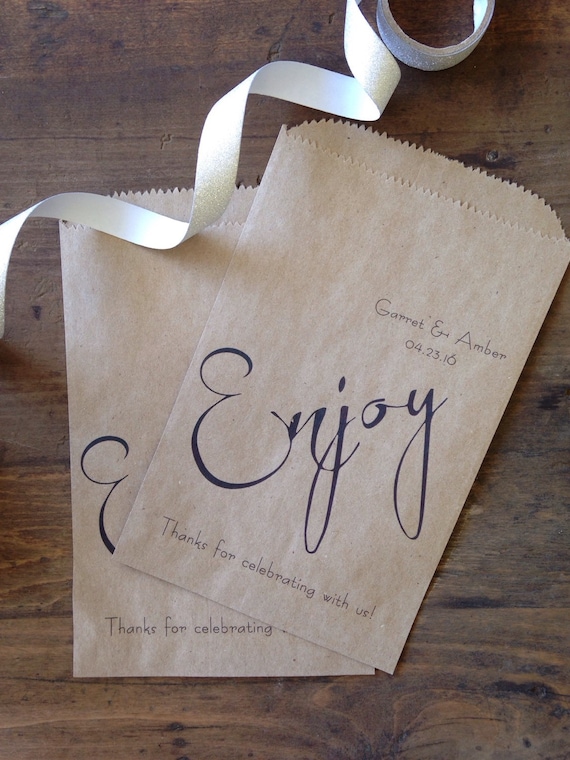 Garret & Amber
04.23.16
Enjoy
Thanks for celebrating with us!
E
Thanks for celebrating